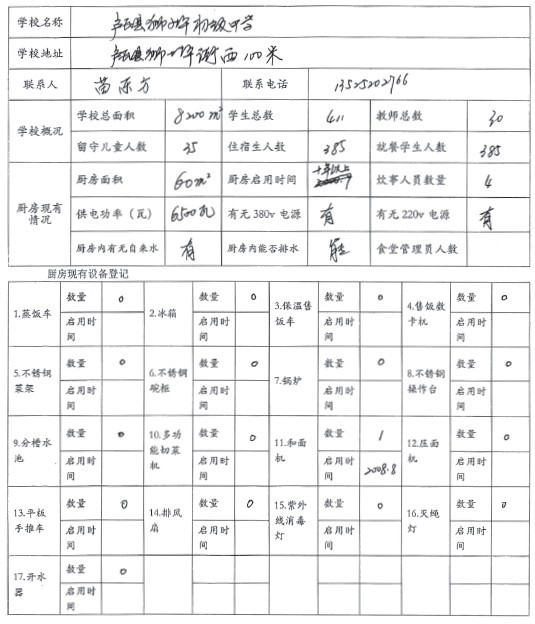 学校名称 卢氏县狮子坪初级中学
学校地址 卢氏县狮子坪街西100米
联系人 苗东方 联系电话 13525202766
学校概况 学校总面积 8200m² 学生总数 411 教师总数 30
留守儿童人数 35 住指生人数 385 就餐学生人数 385
厨房现有情况 厨房面积 60m² 厨房启用时间 十年以上 炊事人员数量 4
供电功率（瓦） 6500瓦 有无380v电源 有 有无220v电源 有
厨房内有无自来水 有 厨房内能否排水 能 食堂管理员人数
厨房现有设备登记
1.蒸饭车 数量 0 2.冰箱 数量 0 3.保温售饭车 数量 0 4.售饭数卡机 数量 0
启用时间 启用时间 启用时间 启用时间
5.不锈钢菜架 数量 0 6.不锈钢碗柜 数量 0 7.锅炉 数量 0 8.不锈钢操作台 数量 0
启用时间 启用时间 启用时间 启用时间
9.分槽水池 数量 0 10.多功能切菜机 数量 0 11.和面机 数量 1 12.压面机 数量 0
启用时间 启用时间 启用时间 2008.8 启用时间
13.平板手推车 数量 0 14.排风扇 数量 0 15.紫外线消毒灯 数量 0 16.灭绳灯 数量 0
启用时间 启用时间 启用时间 启用时间
17.开水器 数量 0
启用时间